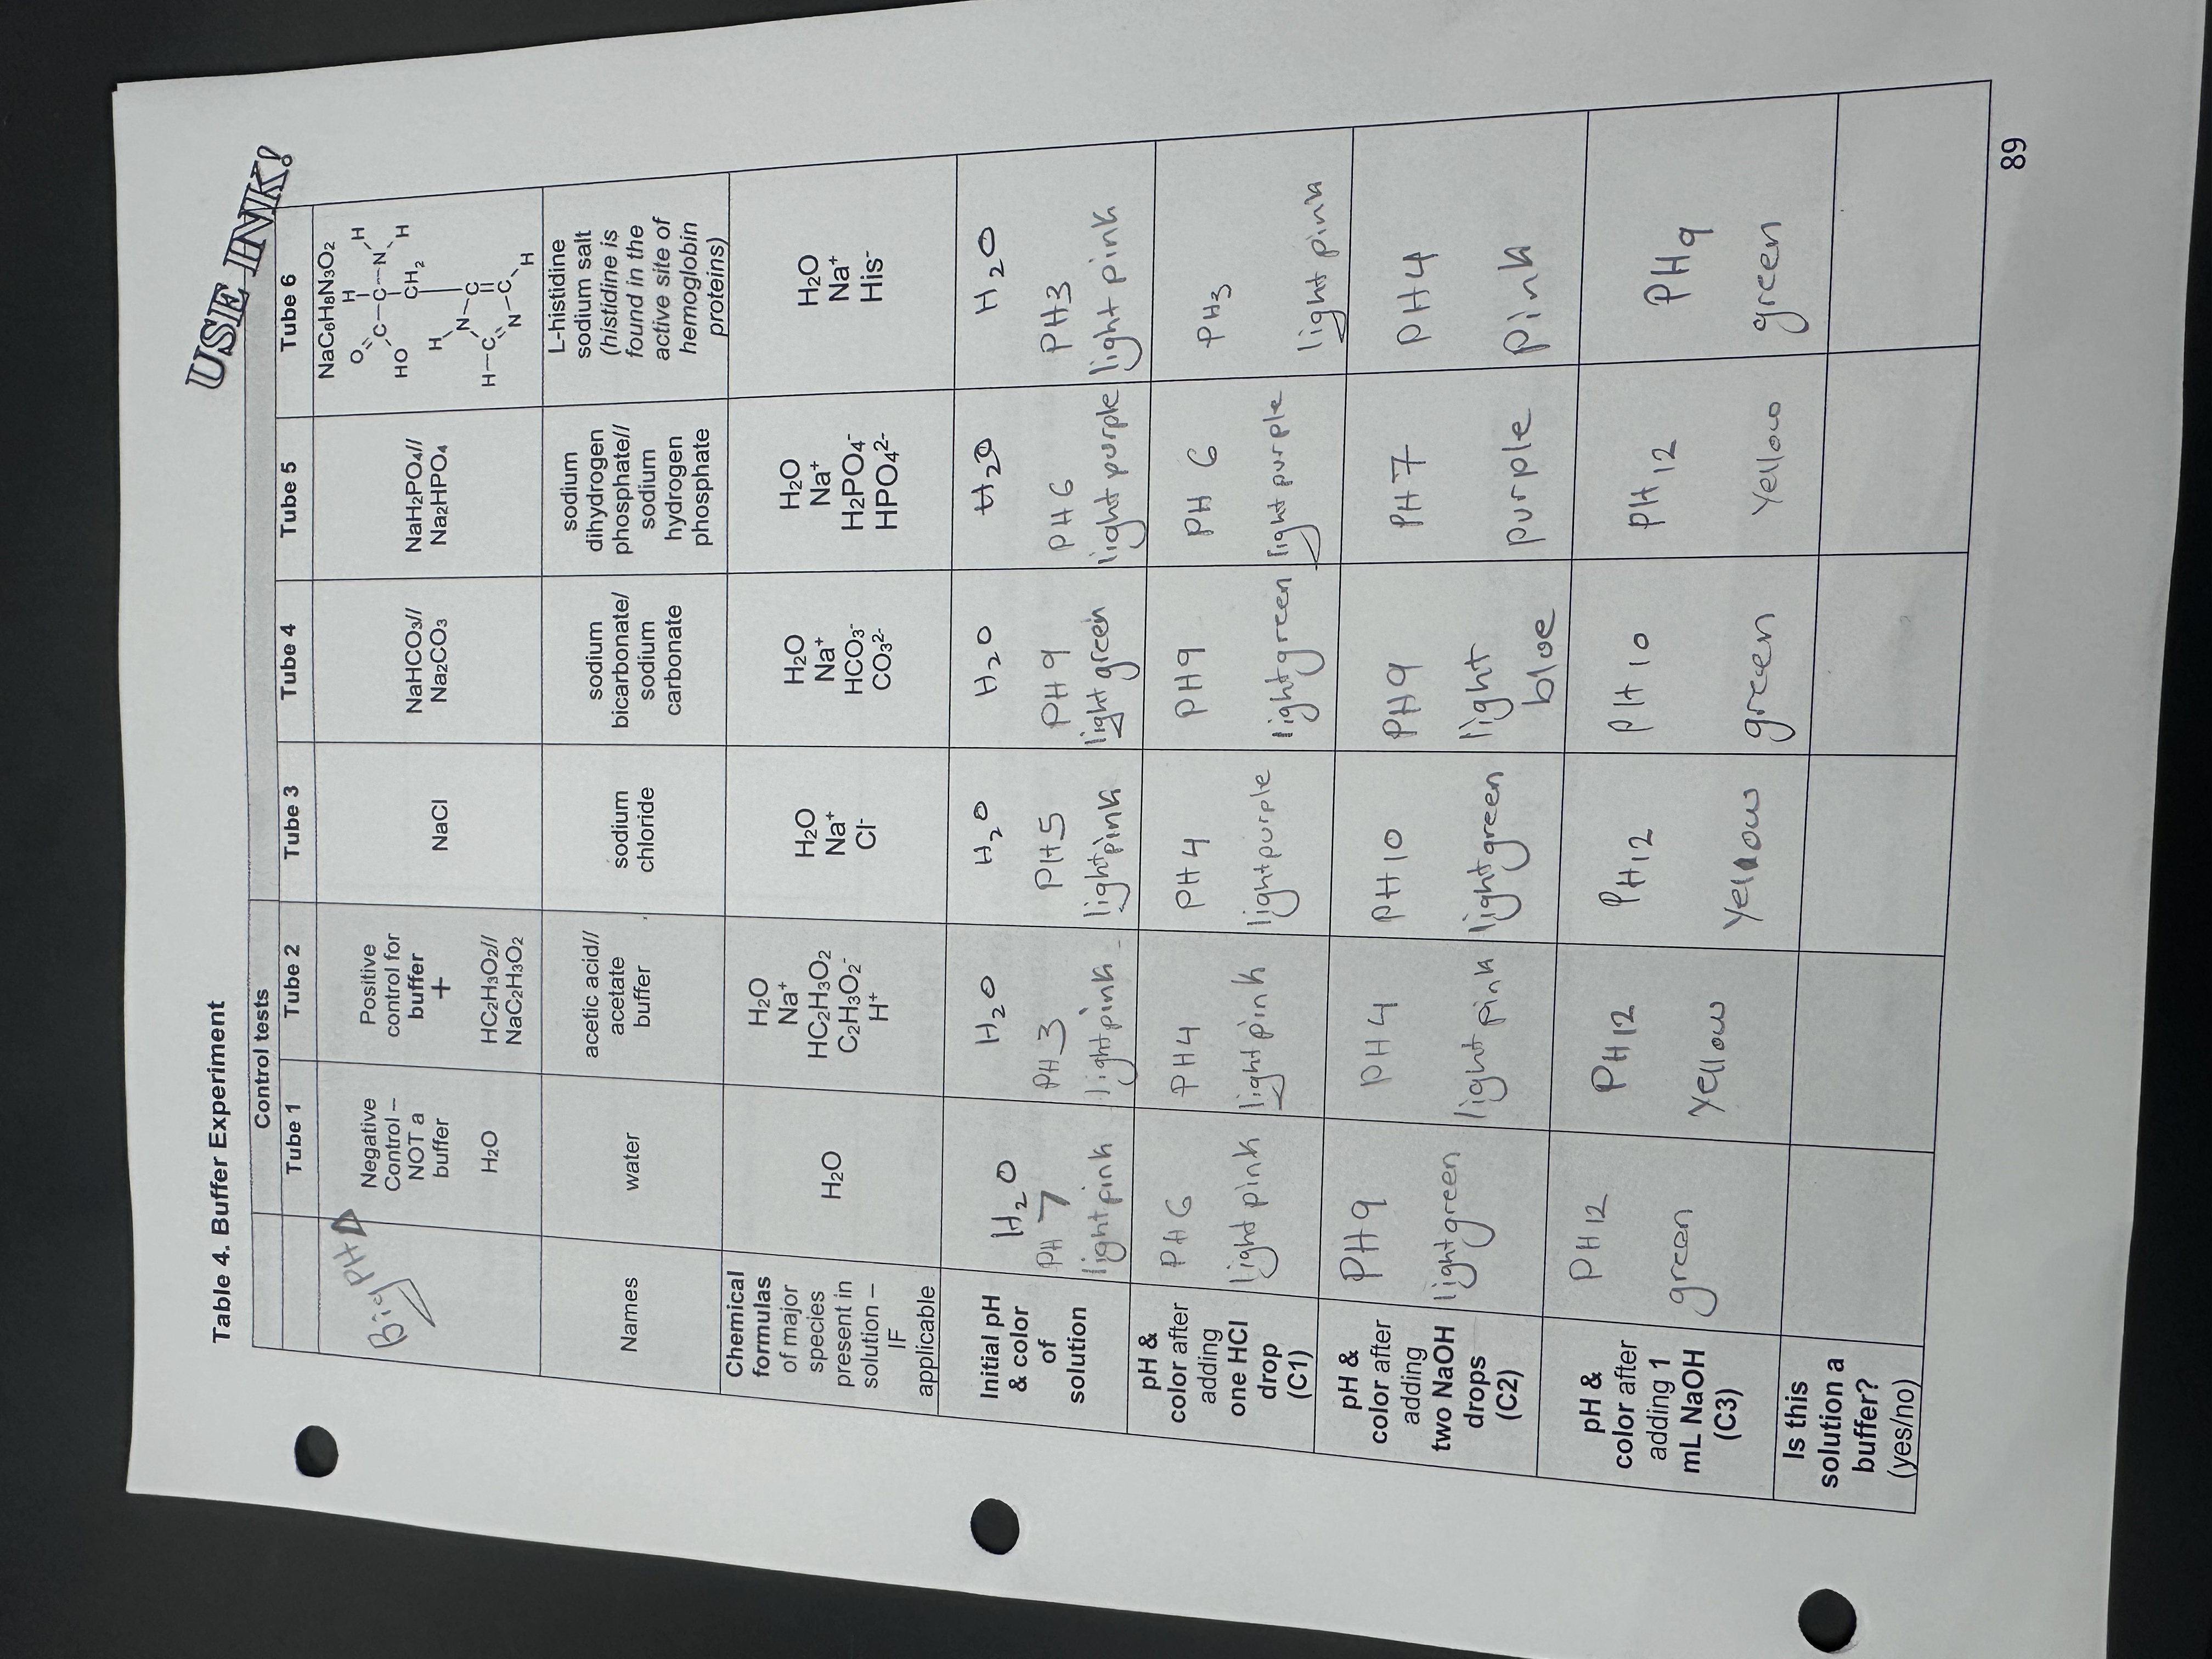 USE INK!
Table 4. Buffer Experiment
Control tests
Tube 1
Tube 2
Tube 3
Tube 4
Tube 5
Tube 6
Big PH
Negative
Control –
NOT a
buffer
H2O
Positive
control for
buffer
+
HC2H3O2//
NaC2H3O2
NaCl
NaHCO3//
Na2CO3
NaH2PO4//
Na2HPO4
NaC6H8N3O2
H
O C–C–N H
HO CH2 H
H N–C
H–C
N–C H
Names
water
acetic acid//
acetate
buffer
sodium
chloride
sodium
bicarbonate/
sodium
carbonate
sodium
dihydrogen
phosphate//
sodium
hydrogen
phosphate
L-histidine
sodium salt
(histidine is
found in the
active site of
hemoglobin
proteins)
Chemical
formulas
of major
species
present in
solution –
IF
applicable
H2O
H2O
Na+
HC2H3O2
C2H3O2-
H+
H2O
Na+
Cl-
H2O
Na+
HCO3-
CO32-
H2O
Na+
H2PO4-
HPO42-
H2O
Na+
His-
Initial pH
& color
of
solution
H2O
PH 7
light pink
H2O
PH 3
light pink
H2O
PH 5
light pink
H2O
PH 9
light green
H2O
PH 6
light purple
H2O
PH3
light pink
pH &
color after
adding
one HCl
drop
(C1)
PH 6
light pink
PH4
light pink
PH 4
light purple
PH9
light green
PH 6
light purple
PH3
light pink
pH &
color after
adding
two NaOH
drops
(C2)
PH9
light green
PH 4
light pink
PH 10
light green
PH9
light
bloe
PH 7
purple
PH4
Pink
pH &
color after
adding 1
mL NaOH
(C3)
PH 12
green
PH 12
Yellow
PH12
Yellow
PH 10
green
PH 12
Yellow
PH9
green
Is this
solution a
buffer?
(yes/no)
89